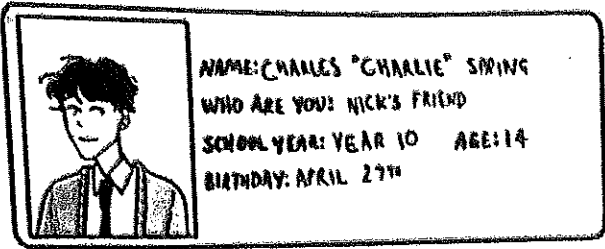 NAME: CHARLES "CHARLIE" SPRING
WHO ARE YOU: NICK'S FRIEND
SCHOOL YEAR: YEAR 10 AGE: 14
BIRTHDAY: APRIL 27TH